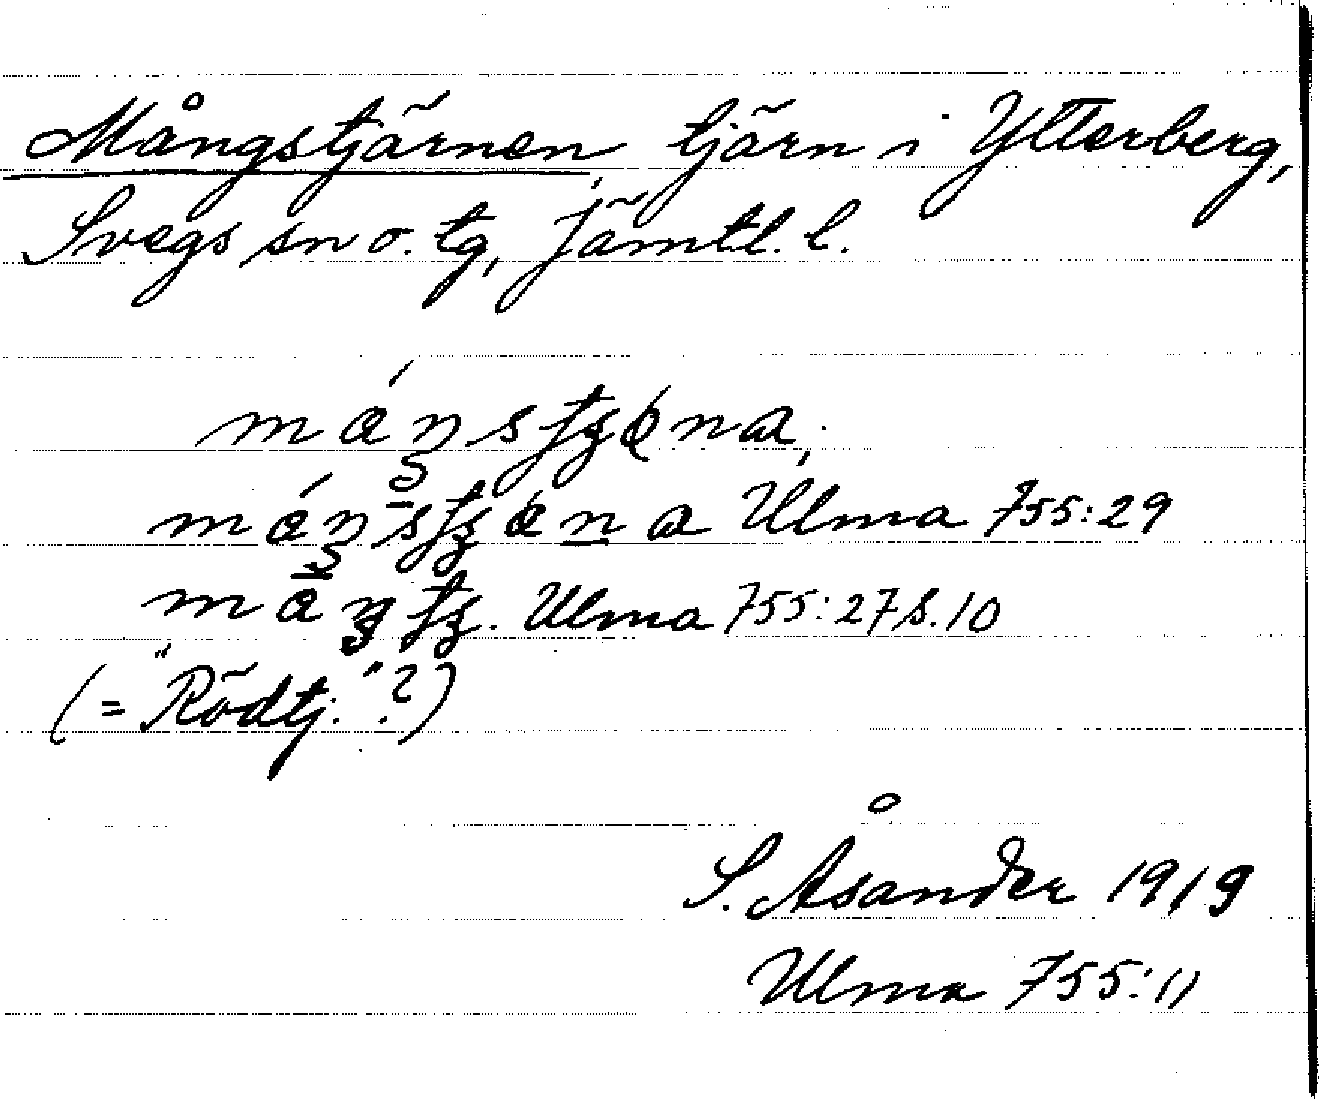 Mångstjärnen, tjärn i Ytterberg,
Svegs sn o. tg, Jämtl. l.
Ulma 755:29
Ulma 755:27 s. 10
(= "Rödtj."?)
S. Åsander 1919
Ulma 755:11